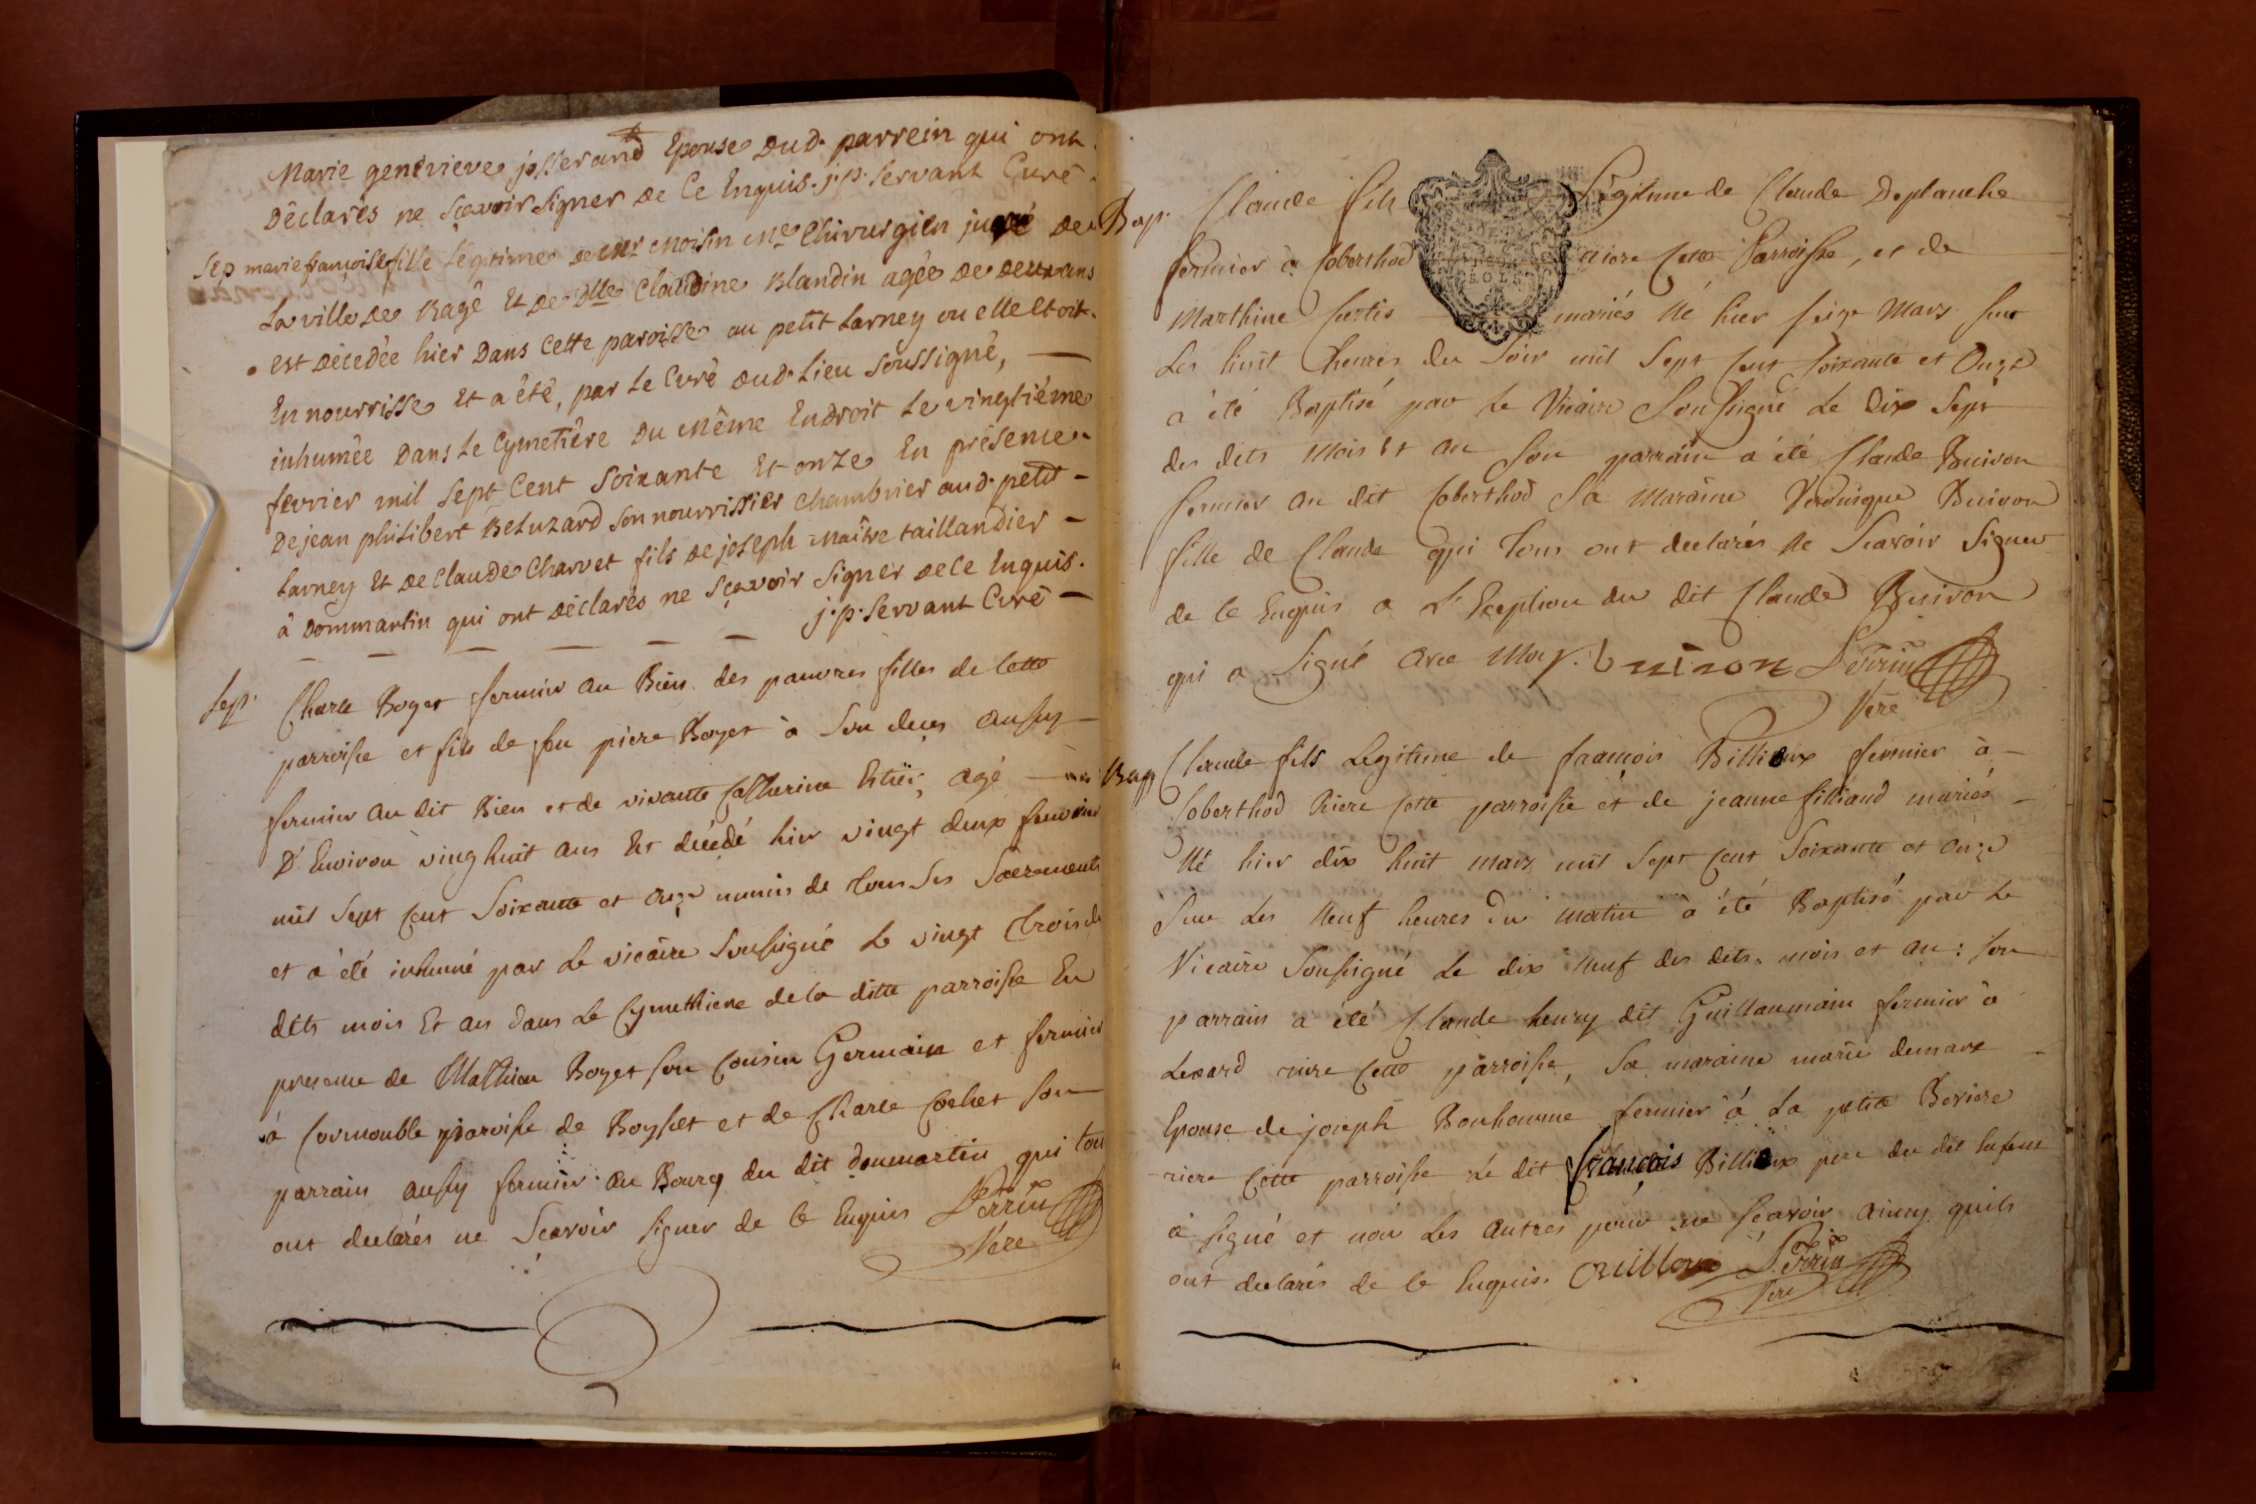 Marie genevieve josserand Epouse dud. parrein qui ont
Déclarés ne sçavoir signer de Ce Enquis. j. p. servant Curé
Sep marie françoise fille Légitime de mr moisin me Chirurgien juré de
La ville de Bagé Et de Dlle Claudine Blandin agée de deux ans
est décedée hier Dans Cette paroisse au petit Larney ou elle Etoit
En nourrisse Et a été, par Le Curé dud. Lieu soussigné,
inhumée Dans Le Cymetiére Du même Endroit Le vingtiéme
fevrier mil sept Cent soixante Et onze En présence
De jean philibert Beluzard son nourrissier chambrier aud. petit
Larney Et de Claude Charvet fils de joseph maître taillandier
à Dommartin qui ont déclarés ne sçavoir signer de Ce Enquis.
j. p. servant Curé
Sep. Charle Boyer fermier au Bien des pauvres filles de Cette
parroisse et fils de feu piere Boyer à Son deces aussy
fermier au dit Bien et de vivante Catherine agé
D'Environ vinghuit ans Est décédé hier vingt deux fevrier
mil Sept Cent Soixante et onze munis de tous Ses Sacrements
et a été inhumé par Le vicaire Soussigné Le vingt trois de
dits mois Et an dans Le Cymethiere de la ditte parroisse En
presence de Mathieu Boyer son Cousin Germain et fermier
à Cormouble paroisse de Boysset et de Charle Cochet Son
parrain aussy fermier au Bourg du dit dommartin qui tous
ont declarés ne Scavoir Signer de Ce Enquis Perrin
Vere
Bap. Claude fils Legitime de Claude Deplanche
fermier à Coberthod riere Cette Parroisse, et de
Marthine Curtis mariés Né hier seize Mars sur
Les huit heures du Soir mil Sept Cent Soixante et Onze
a été Baptisé par Le Vicaire Soussigné Le Dix Sept
des dits Mois Et an Son parrain a été Claude Buiron
fermier au dit Coberthod Sa Maraine Veronique Buiron
fille de Claude qui Tous ont declarés Ne Scavoir Signer
de Ce Enquis a L'Exeption du dit Claude Buiron
qui a Signé avec Moy. buiron Perrin
Vere
Bap Claude fils Legitime de françois Billioux fermier à
Coberthod Riere Cette parroisse et de jeanne filliaud mariés
Né hier dix huit mars mil Sept Cent Soixante et onze
Sur Les Neuf heures du matin à été Baptisé par Le
Vicaire Soussigné Le dix Neuf des dits mois et an : Son
parrain a été Claude henry dit Guillaumain fermier à
Lexard riere Cette parroisse, Sa maraine marie demare
Epouse de joseph Bonhomme fermier à La petite Beviere
riere Cette parroisse Le dit francois Billioux pere du dit Enfant
à signé et non Les autres pour ne Scavoir ainsy quils
ont declarés de Ce Enquis. Perrin
Vere